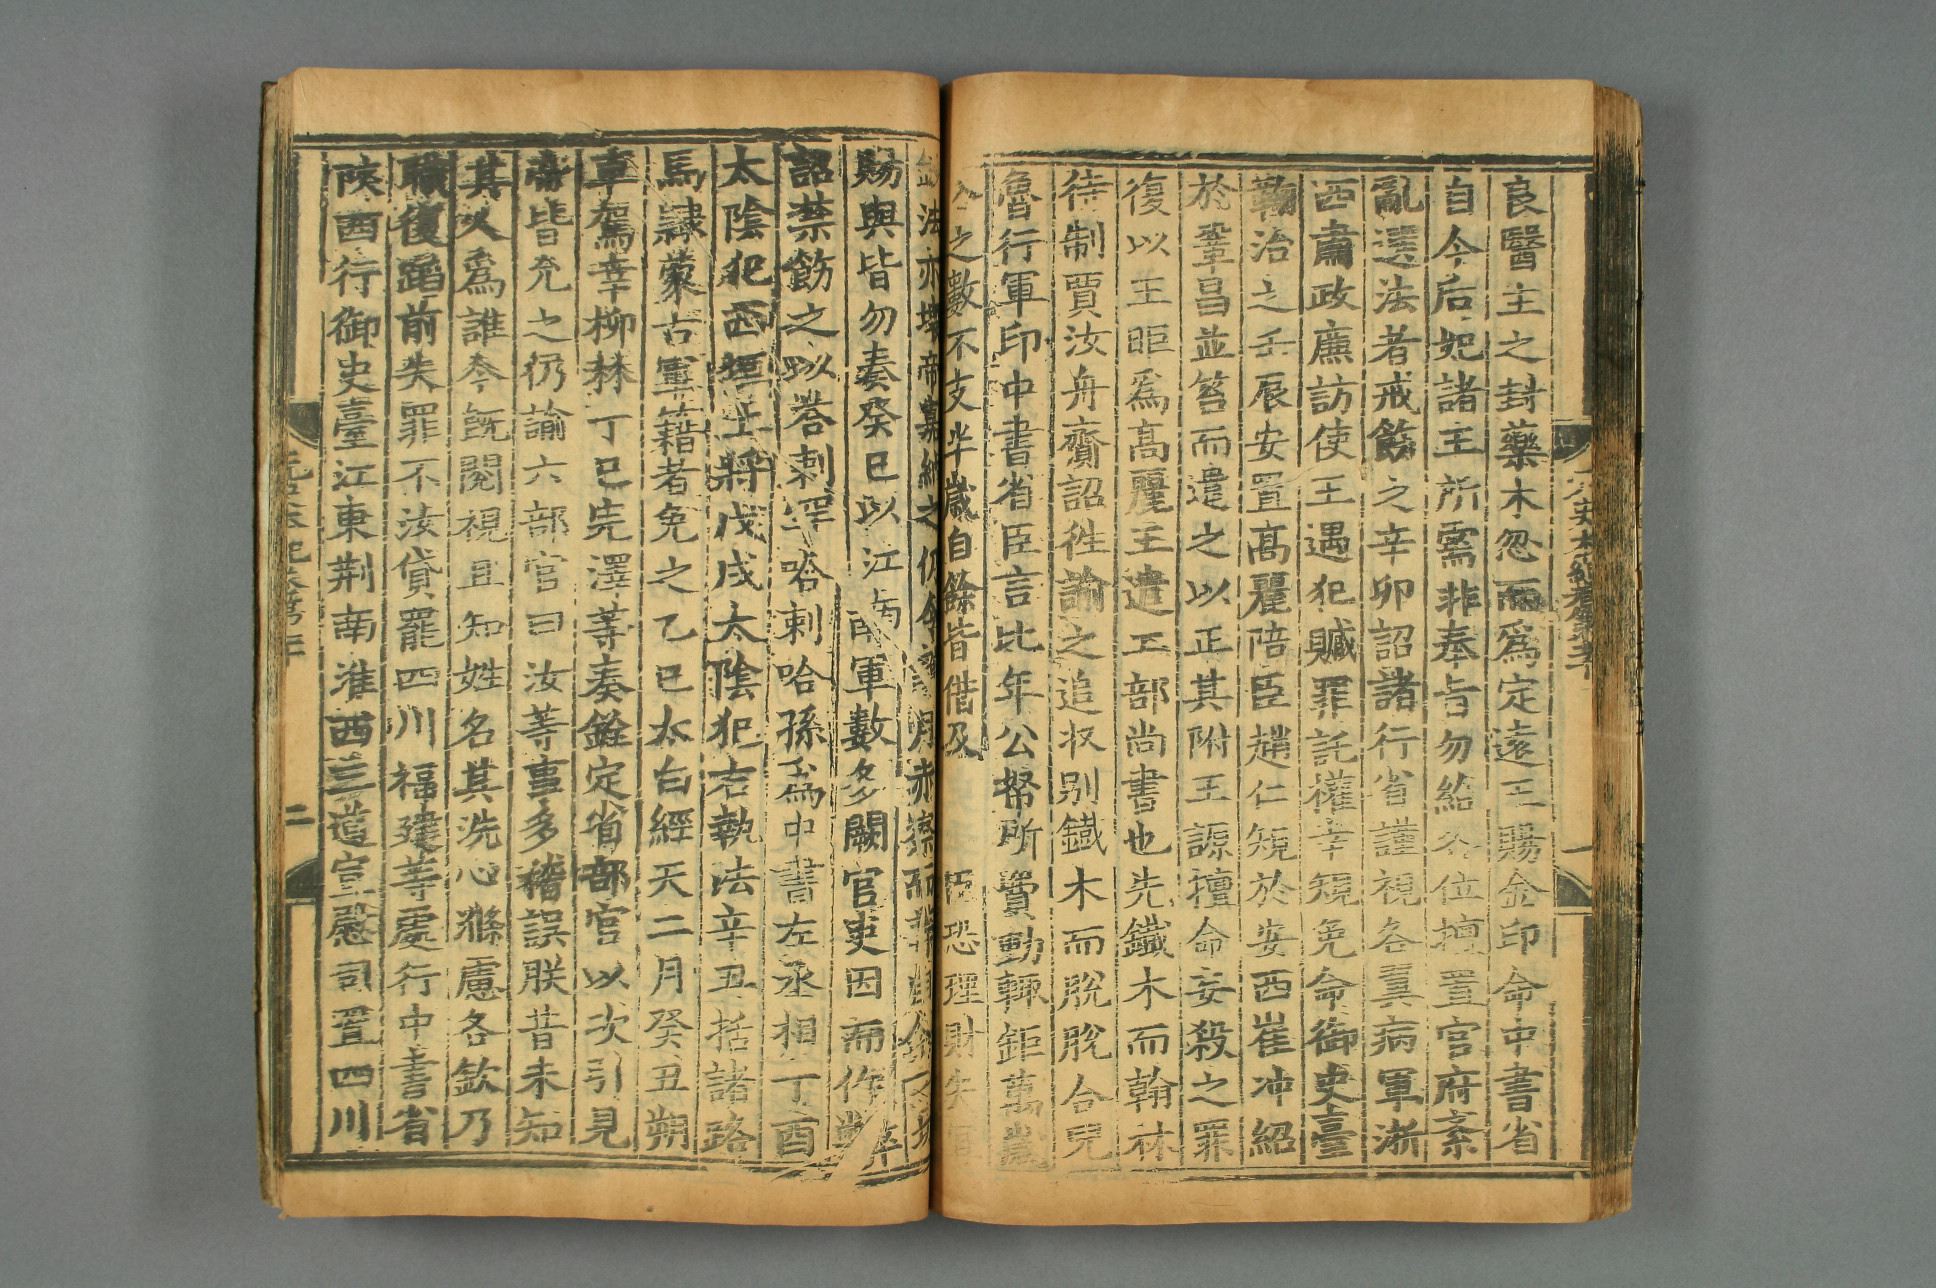 良醫主之封藥木忽而爲定遠王賜金印命中書省
自今后妃諸王所需非奉旨勿給各位擅置官府紊
亂選法者戒飭之辛卯詔諸行省謹視各翼病軍浙
西肅政廉訪使王遇犯贓罪託權幸規免命御史臺
鞫治之壬辰安置高麗陪臣趙仁規於安西崔冲紹
於鞏昌並笞而遣之以正其附王謜擅命妄殺之罪
復以王昛爲高麗王遣工部尚書也先鐵木而翰林
待制賈汝舟齎詔徃諭之追收别鐵木而脫脫合兒
魯行軍印中書省臣言比年公帑所費動輒鉅萬歲
入之數不支半歲自餘皆借及
鈔法亦壞帝嘉納之仍令
賜與皆勿奏癸巳以江南軍數多闕官吏因而作弊
詔禁飭之以荅剌罕哈剌哈孫爲中書左丞相丁酉
太陰犯西垣上將戊戌太陰犯右執法辛丑括諸路
馬隸蒙古軍籍者免之乙巳太白經天二月癸丑朔
車駕幸柳林丁巳完澤等奏銓定省部官以次引見
帝皆允之仍諭六部官曰汝等事多稽誤朕昔未知
其人爲誰今旣閱視且知姓名其洗心滌慮各欽乃
職復蹈前失罪不汝貸罷四川福建等處行中書省
陝西行御史臺江東荆南淮西三道宣慰司置四川
二